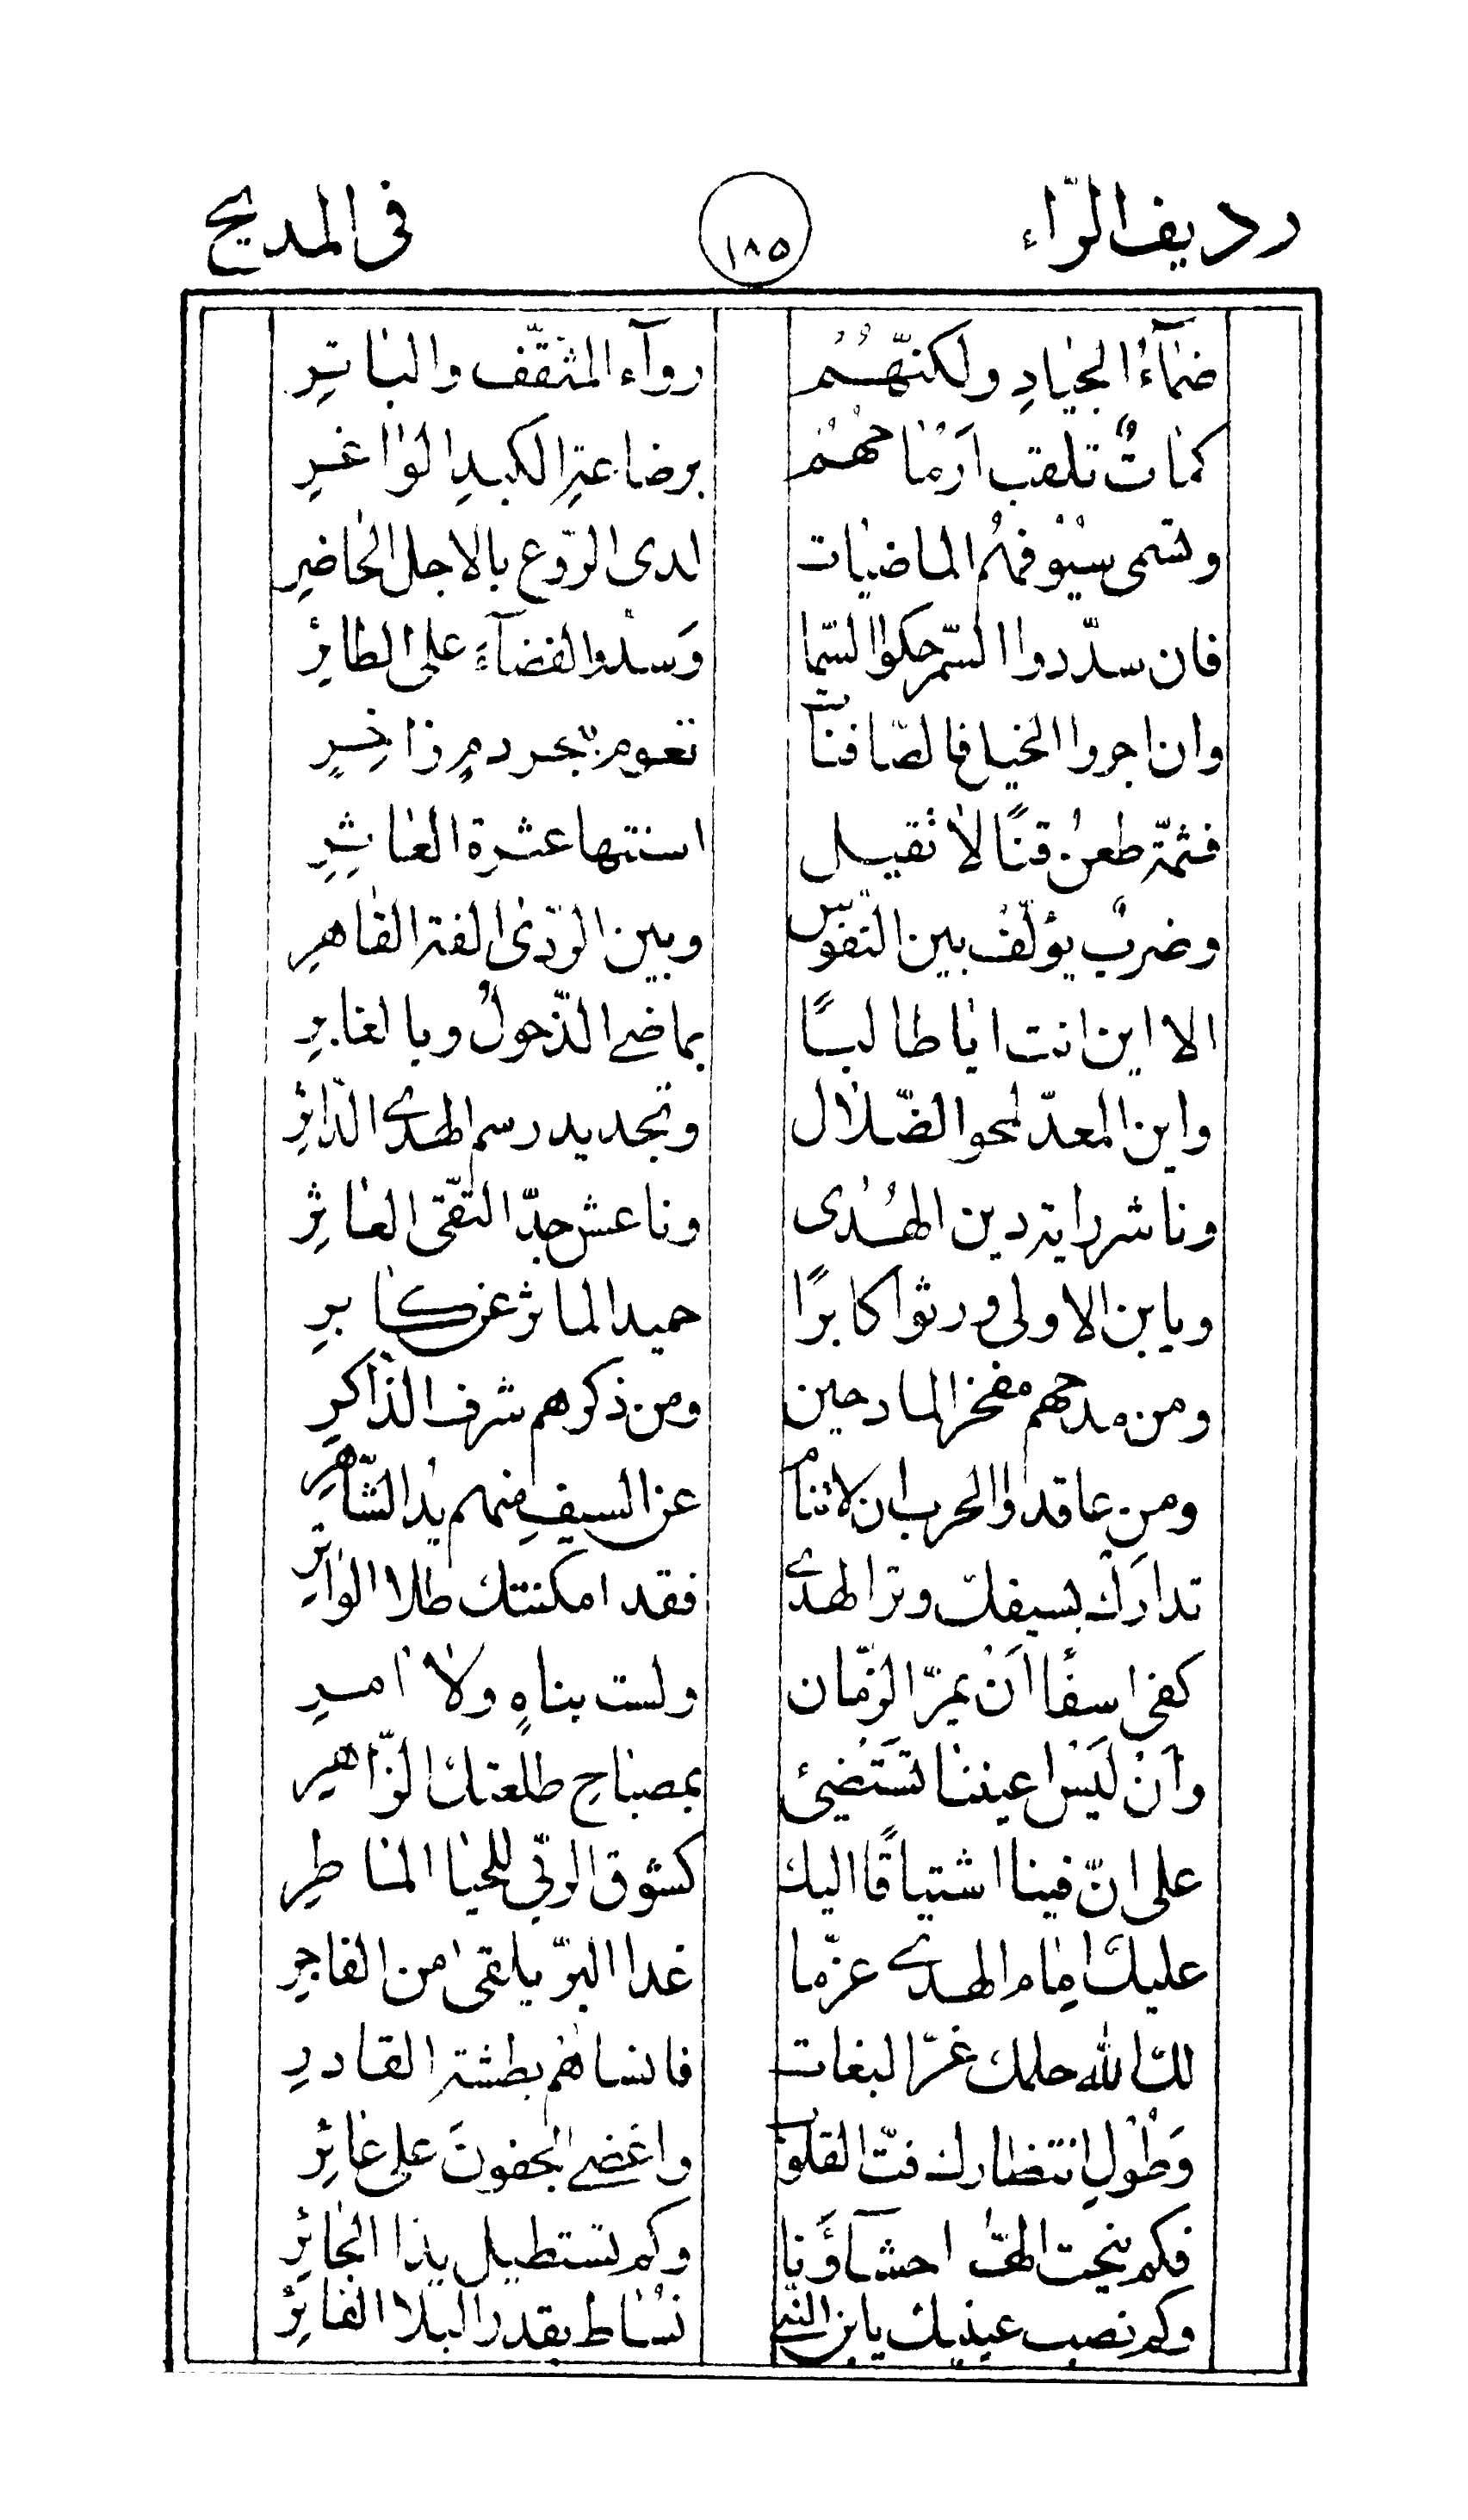 رديف الرّاء ١٨٥ فى المديح
ضمآءُ الجياد ولكنّهُمُ روآء المثقّف والباترِ
كماتٌ تلقب ارماحهُم برضاعةِ الكبدِ الواغرِ
وتسمى سيوفهُم الماضيات لدى الرّوع بالاجل الحاضرِ
فان سدّدوا السّمر حكوا السّما وَسدّوا الفضآءَ على الطائرِ
وان اجروا الخيل فالصّافنات تعوم ببحر دمٍ زاخِرٍ
فثمّة طعن قنًا لا تقيل اسنتها عثرة العاثِرِ
وضربٌ يؤلّف بين النّفوس وبين الرّدى الفة القاهرِ
الا اين انت ايا طالبًا بماضى الذّحول وبالغابرِ
واين المعدّ لمحو الضّلال وتجديد رسم الهدى الدّاثر
وناشر راية دين الهُدى وناعش جدّ التّقى العاثرِ
ويابن الاولى ورثوا كابرًا حميد المآثر عن كابرِ
ومن مدحهم مفخر المادحين ومن ذكرهم شرف الذاكرِ
ومن عاقدوا الحرب ان لا تنام عن السيفِ منهم يد الشّاهرِ
تدارَك بسيفك وتر الهدى فقد امكنتك طلا الواترِ
كفى اسفًا اَنْ يمرّ الزّمان ولست بناهٍ ولا آمرِ
واَنْ لَيْسَ اعيننا تَستَضيئ بمصباحِ طلعتك الزّاهرِ
على انّ فينا اشتياقًا اليك كشوق الرّبى للحيا الماطرِ
عليك امام الهدى عزّ ما غدا البرّ يلقى من الفاجرِ
لك الله حلمك غرّ البغات فانساهُم بطشة القادرِ
وَطُولِ انتضارك فتّ القلوب واغضى الجفونَ على غائرِ
فكم ينحت الهمّ احشآؤنا وكم تستطيل يد الجائرِ
وكم نصب عينيك يابن النبى نساط بقدر البلا الفائرِ